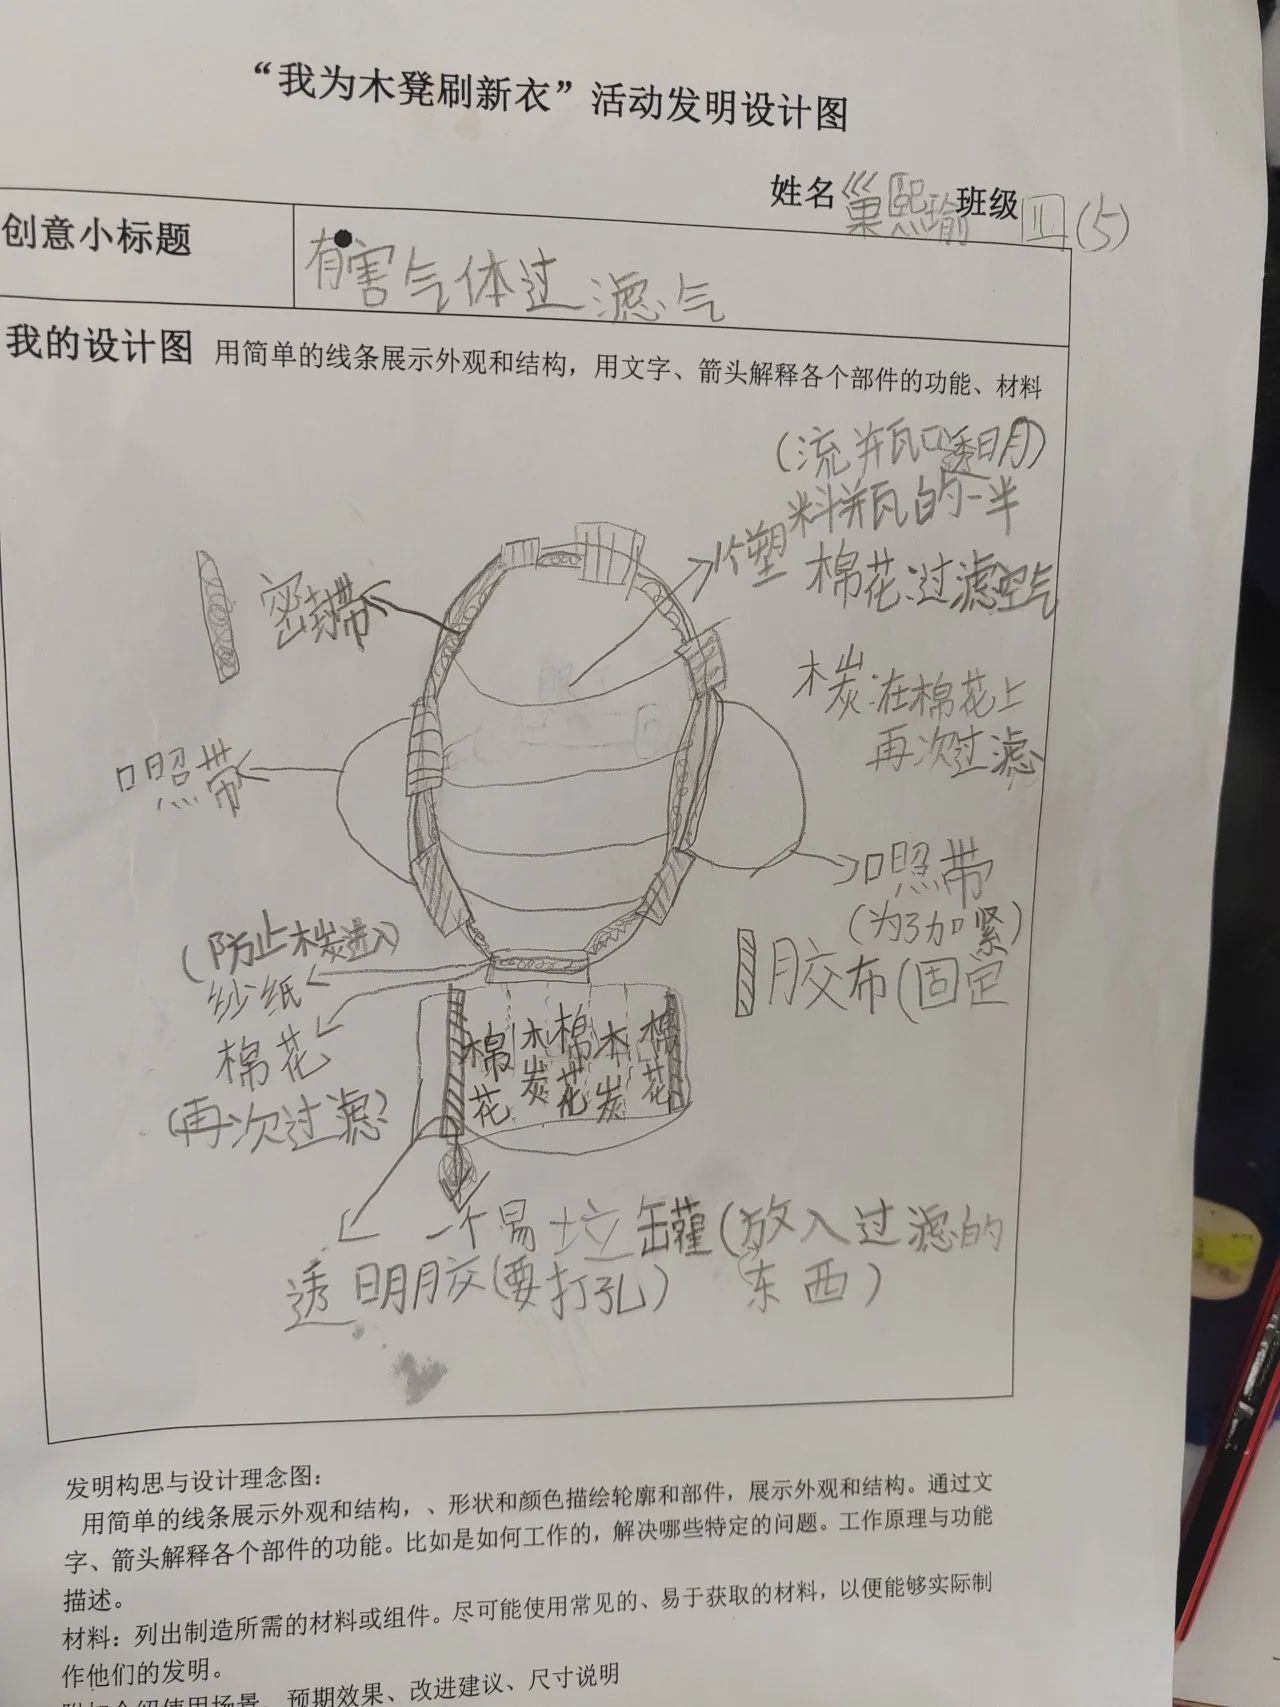 “我为木凳刷新衣”活动发明设计图
姓名 巢熙瑜 班级 四(5)
创意小标题
有害气体过滤气
我的设计图 用简单的线条展示外观和结构，用文字、箭头解释各个部件的功能、材料
(流并瓦口透明)
个塑料瓶的一半
棉花:过滤空气
密封带
木炭:在棉花上
再次过滤
口照带
口照带
(为了加紧)
(防止木炭进入)
纱纸
胶布(固定
棉花
(再次过滤)
棉花
木炭
棉花
木炭
棉花
一个易拉罐(放入过滤的
东西)
透明胶(要打孔)
发明构思与设计理念图：
用简单的线条展示外观和结构，、形状和颜色描绘轮廓和部件，展示外观和结构。通过文
字、箭头解释各个部件的功能。比如是如何工作的，解决哪些特定的问题。工作原理与功能
描述。
材料：列出制造所需的材料或组件。尽可能使用常见的、易于获取的材料，以便能够实际制
作他们的发明。
附加介绍使用场景、预期效果、改进建议、尺寸说明